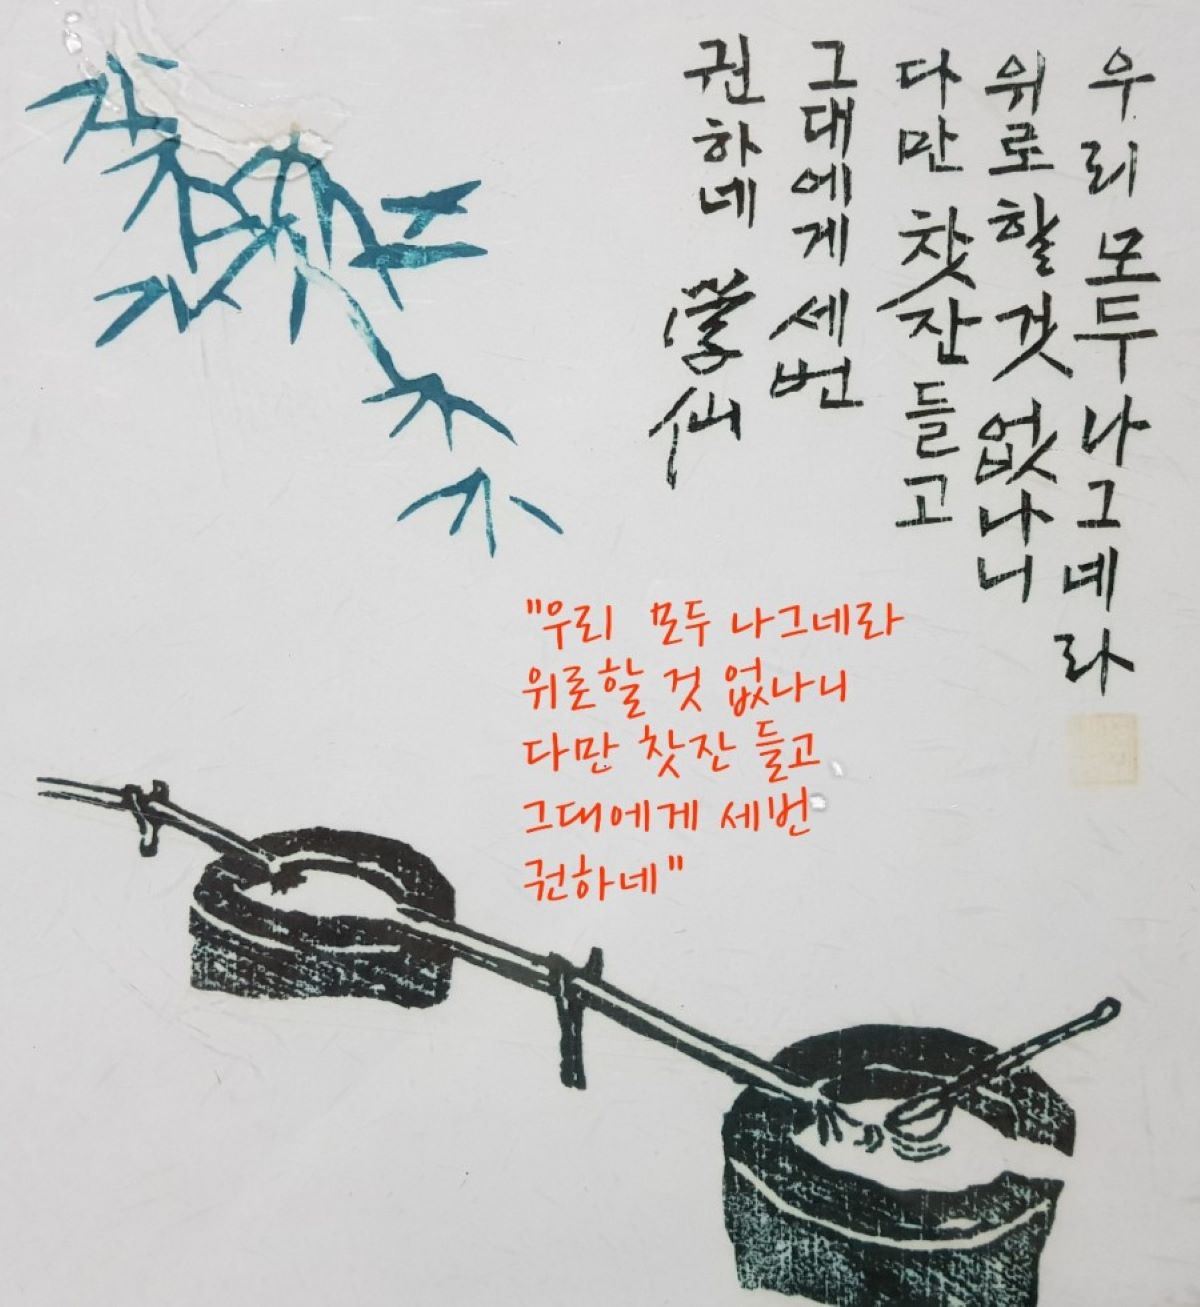 우리 모두 나그네라
위로할 것 없나니
다만 찻잔 들고
그대에게 세번
권하네 仙
"우리 모두 나그네라
위로할 것 없나니
다만 찻잔 들고
그대에게 세번
권하네"